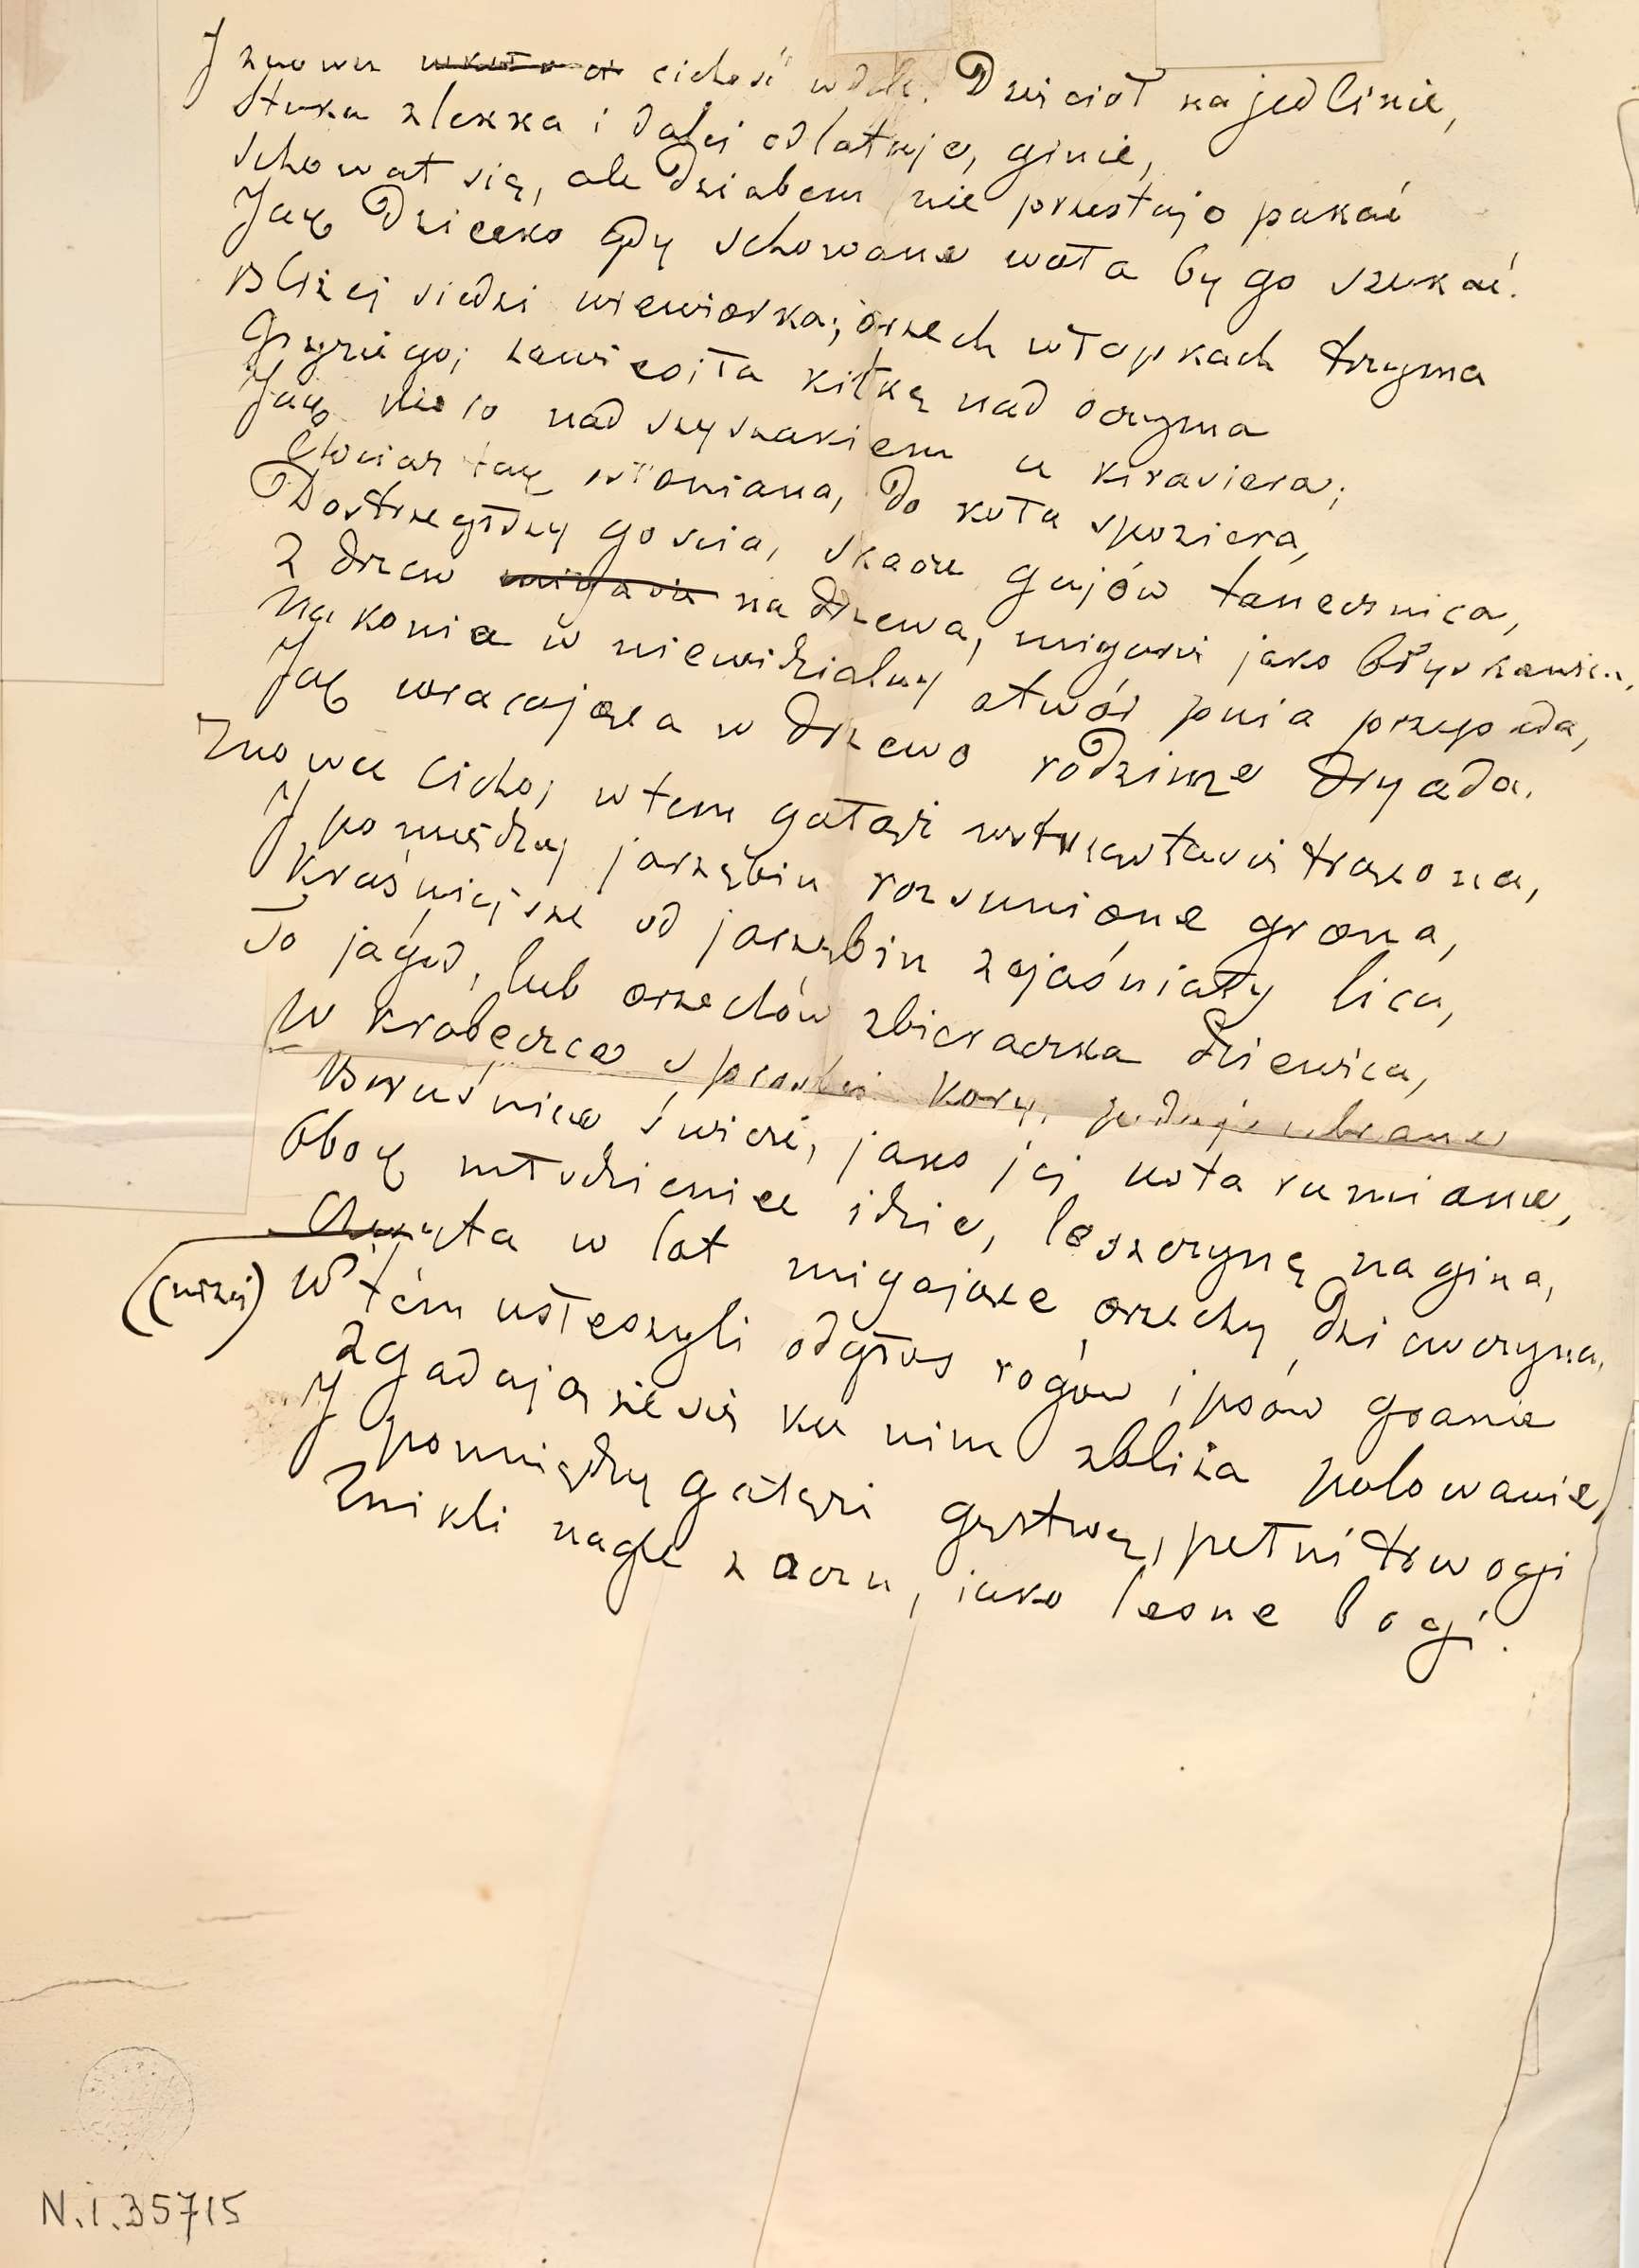 I znowu cichość wdole. Dzięcioł na jedlinie,
Stuka zlekka i dalej odlatuje, ginie,
Schował się, ale dziobem nie przestaje pukać
Jak dziecko gdy schowane woła by go szukać.
Bliżej siedzi wiewiorka; orzech włapkach trzyma
Gryzie go; zawiesiła kitkę nad oczyma
Jak pioro nad szyszakiem u kirasiera;
Chociaz tak osłoniana, do koła spoziera,
Dostrzegłszy goscia, skacze gajów tanecznica,
Z drzew miga się na drzewa, migasię jako błyskawica,
Na koniec w niewidzialny otwór pnia przepada,
Jak wracająca w drzewo rodzime dryada.
Znowu cicho; wtem gałąź wstrzęsłasię trącona,
I pomiędzy jarzębin rozsunione grona,
Kraśniejsze od jarzębin zajaśniały lica,
To jagod, lub orzechów zbieraczka dziewica,
W krobeczce z prostej kory, podaje zbrane
Bruśnice świeże, jako jej usta rumiane,
Obok młodzieniec idzie, leszczynę nagina,
Chwyta w lot migające orzechy dziewczyna.
(niżej) Wtém usłeszyli odgłos rogów i psów granie
Zgadują żesię ku nim zbliża polowanie,
I pomiędzy gałęzi gęstwę, pełni trwogi
Znikli nagle z oczu, jako lesne bogi.
N.i.35715